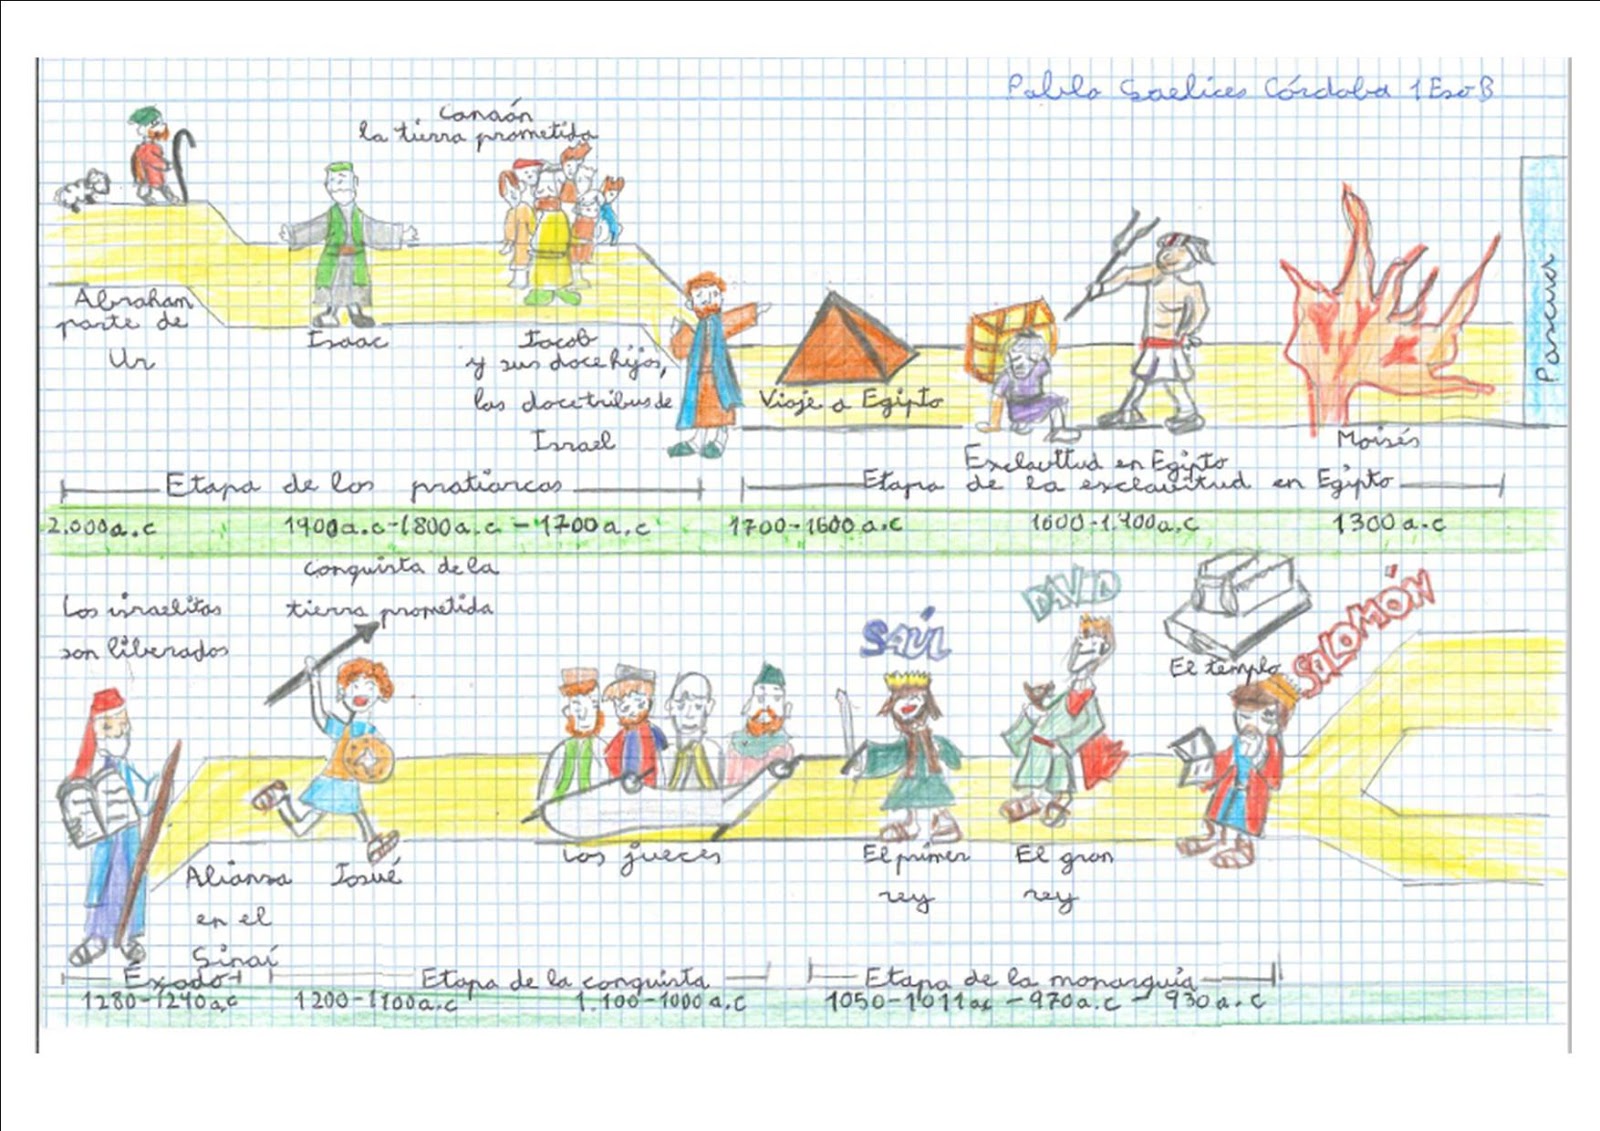 Pablo Saelices Córdoba 1EsoB
Canaán
la tierra prometida
Abraham
parte de
Ur
Isaac
Jacob
y sus doce hijos,
las doce tribus de
Israel
Viaje a Egipto
Exclavitud en Egipto
Moisés
Pascua
Etapa de los pratiarcas
Etapa de la exclavitud en Egipto
2.000a.c
1900a.c-1800a.c - 1700a.c
1700-1600a.c
1600-1.400a.c
1300a.c
Los israelitas
son liberados
conquista de la
tierra prometida
SAÚL
DAVID
El templo
SALOMÓN
Alianza
en el
Sinaí
Josué
Los jueces
El primer
rey
El gran
rey
Éxodo
Etapa de la conquista
Etapa de la monarquía
1280-1240a.c
1200-1100a.c
1.100-1000a.c
1050-1011ac - 970a.c - 930a.c